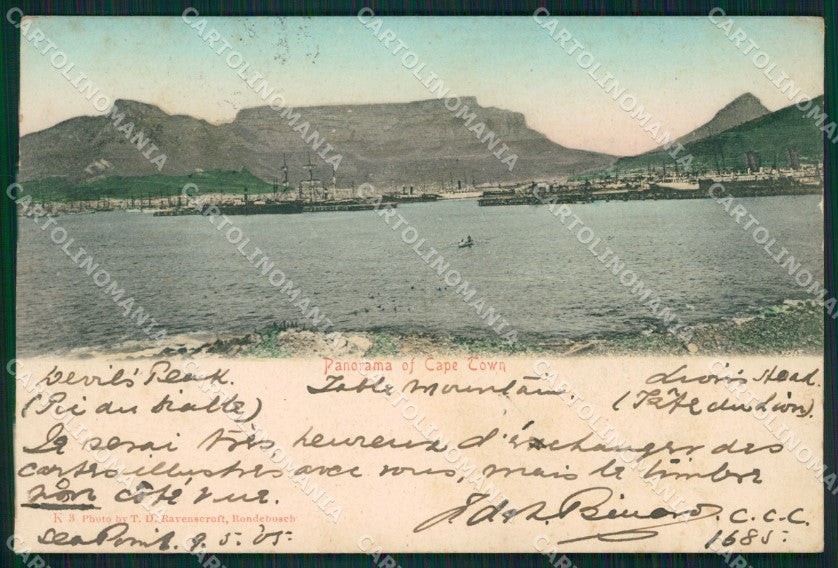 Panorama of Cape Town
Devil's Peak. Table Mountain. Lion's Head.
(Pic du Diable) (Tête du Lion).
Je serai très heureux d'échanger des
cartes illustrés avec vous, mais le timbre
non côté vue.
K 3 Photo by T. D. Ravenscroft, Rondebosch
C.C.C.
Sea Point. 9.5.'05. 1685.
CARTOLINOMANIA